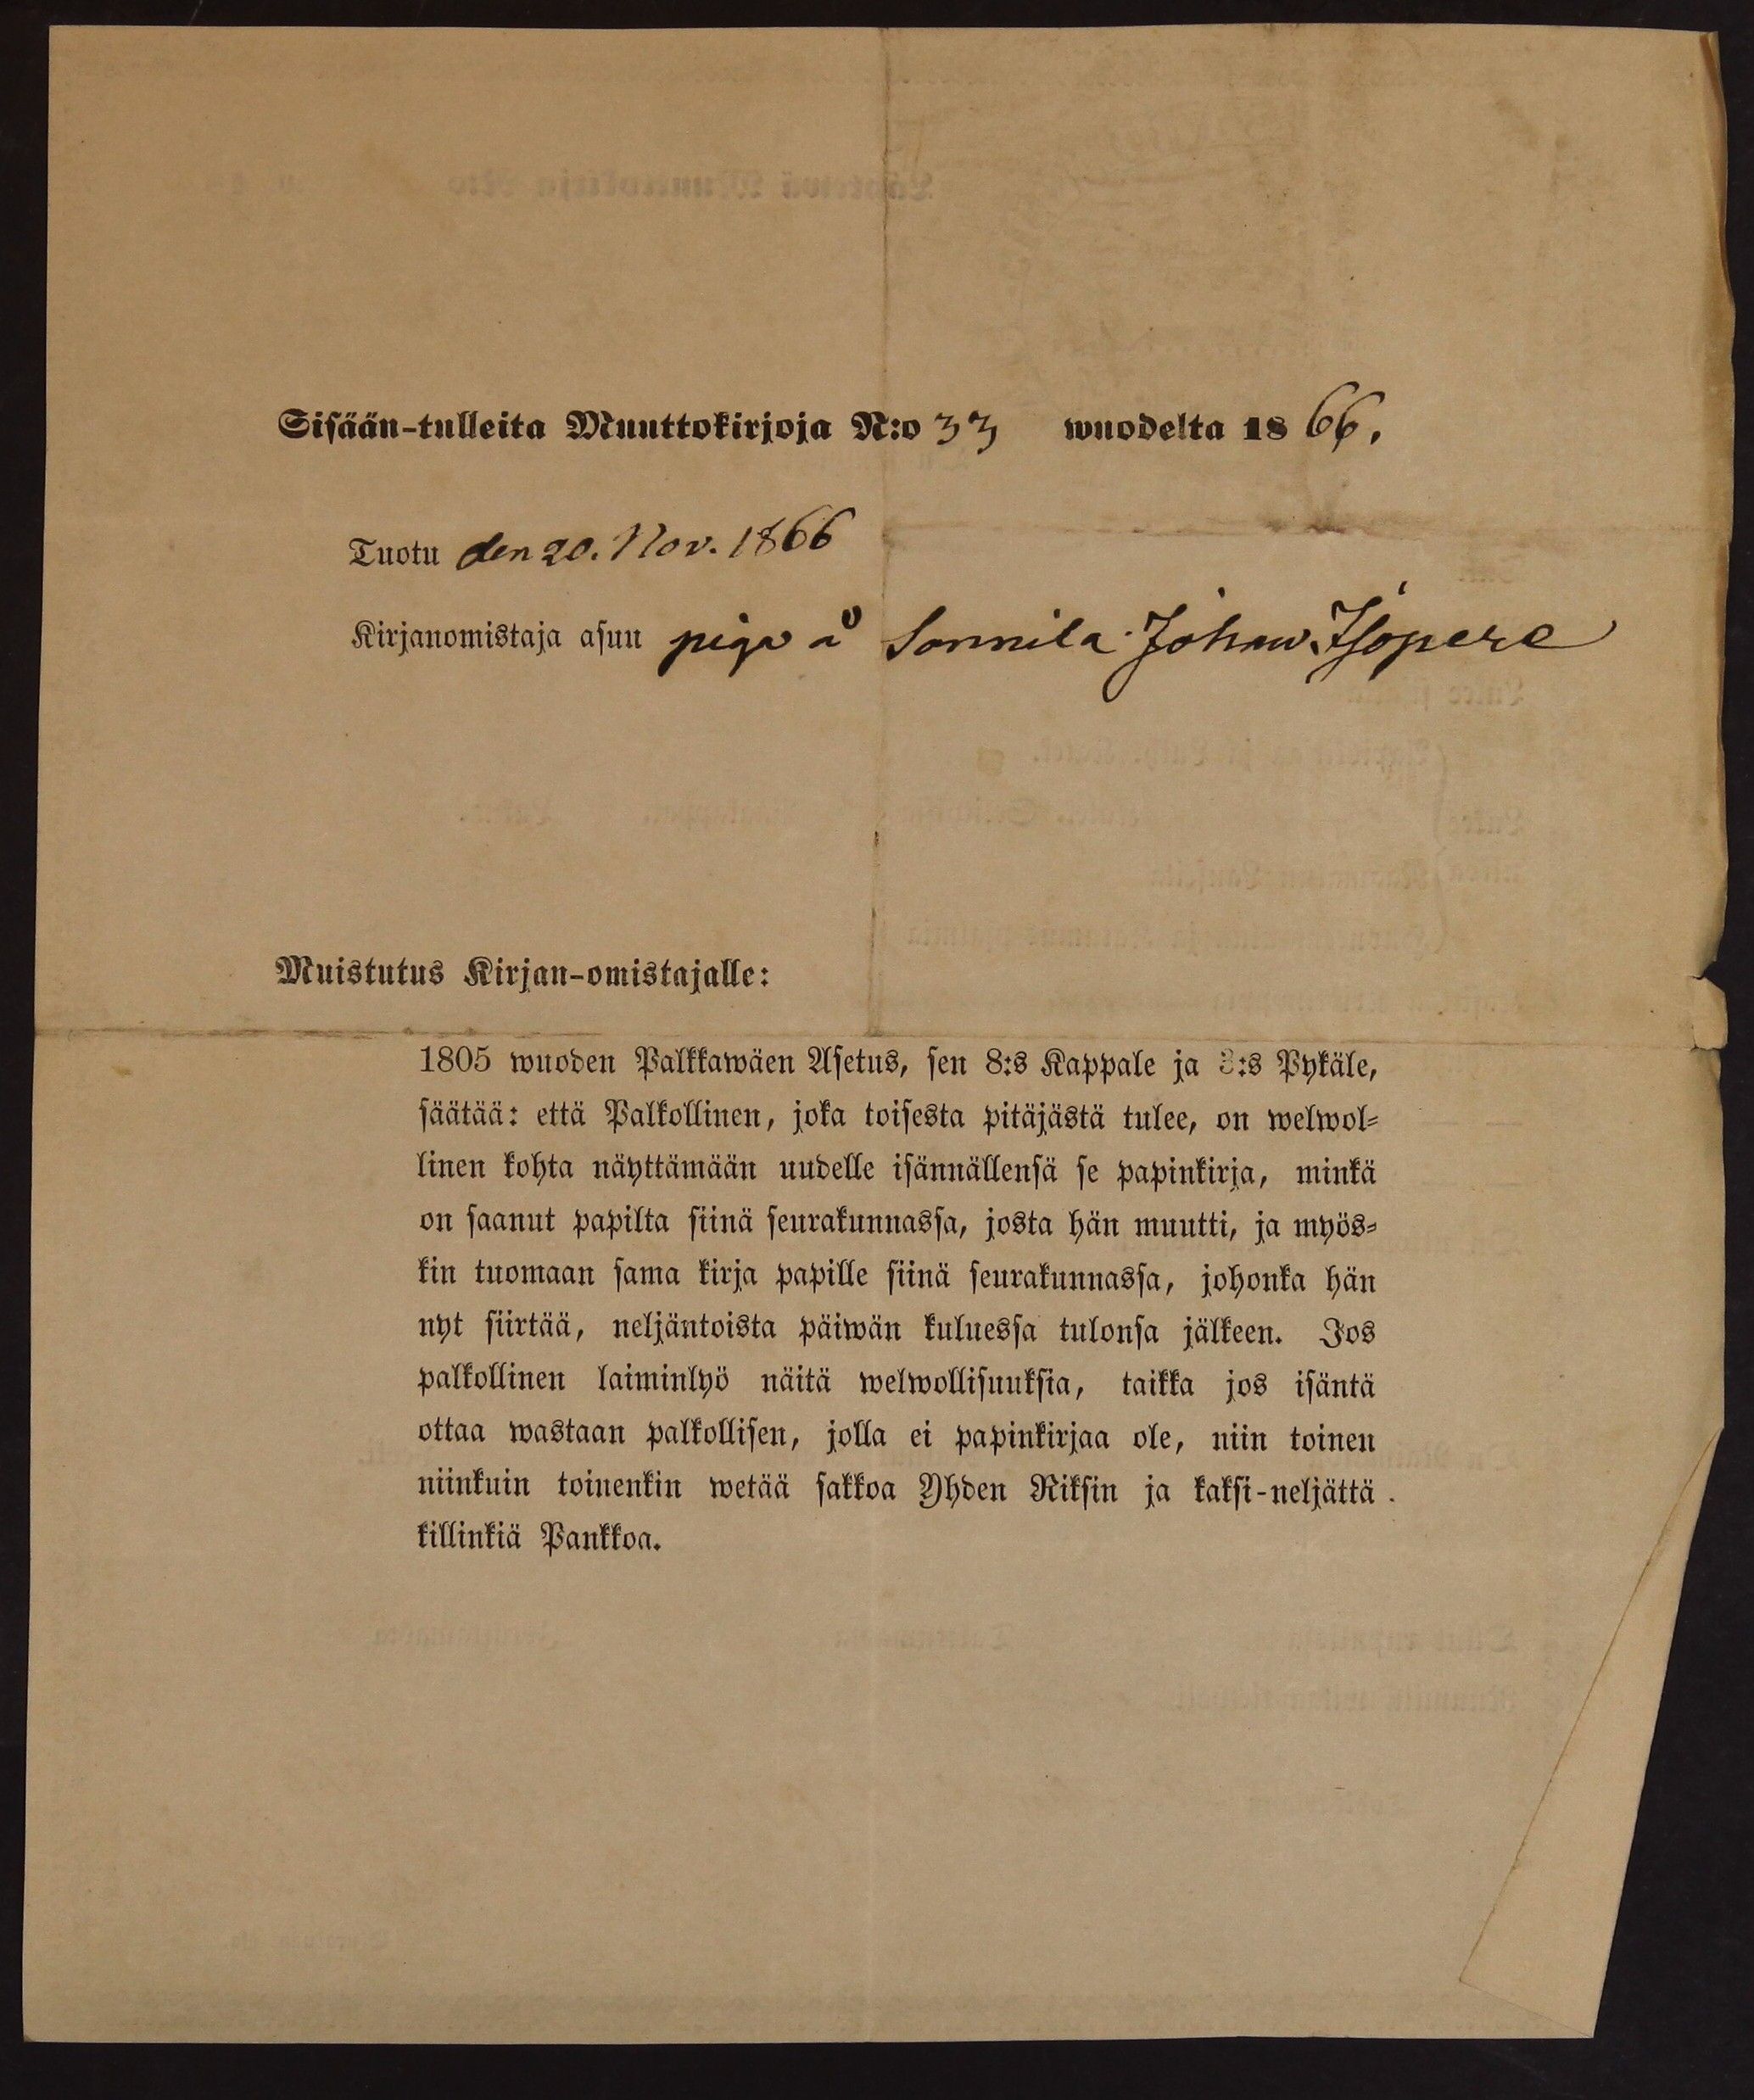 Sisään-tulleita Muuttokirjoja N:o 33 wuodelta 1866.
Tuotu den 20. Nov. 1866
Kirjanomistaja asuu piga å Sonnila Johan Isopere
Muistutus Kirjan-omistajalle:
1805 wuoden Palkkawäen Asetus, sen 8:s Kappale ja 3:s Pykäle,
säätää: että Palkollinen, joka toisesta pitäjästä tulee, on welwol-
linen kohta näyttämään uudelle isännällensä se papinkirja, minkä
on saanut papilta siinä seurakunnassa, josta hän muutti, ja myös-
kin tuomaan sama kirja papille siinä seurakunnassa, johonka hän
nyt siirtää, neljäntoista päiwän kuluessa tulonsa jälkeen. Jos
palkollinen laiminlyö näitä welwollisuuksia, taikka jos isäntä
ottaa wastaan palkollisen, jolla ei papinkirjaa ole, niin toinen
niinkuin toinenkin wetää sakkoa Yhden Riksin ja kaksi-neljättä
killinkiä Pankkoa.